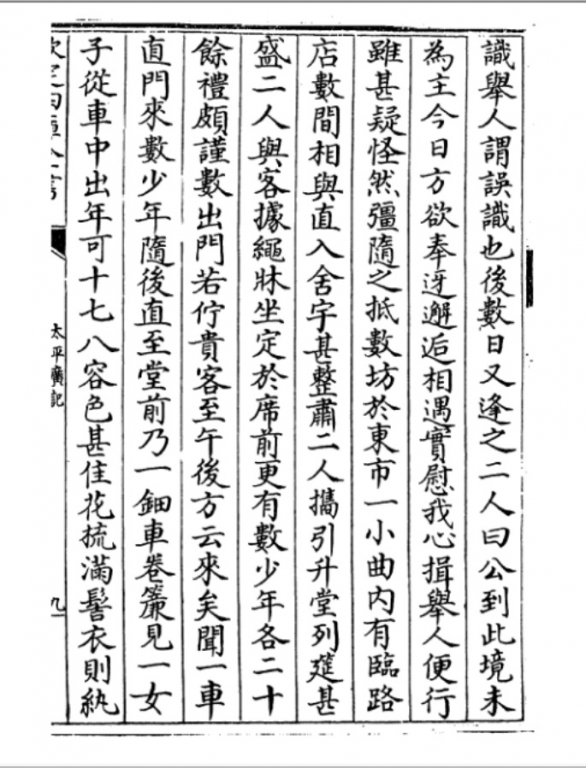 識舉人謂誤識也後數日又逢之二人曰公到此境未
為主今日方欲奉迓邂逅相遇實慰我心揖舉人便行
雖甚疑怪然彊隨之抵數坊於東市一小曲内有臨路
店數間相與直入舍宇甚整肅二人攜引升堂列筵甚
盛二人與客據繩牀坐定於席前更有數少年各二十
餘禮頗謹數出門若佇貴客至午後方云來矣聞一車
直門來數少年隨後直至堂前乃一鈿車卷簾見一女
子從車中出年可十七八容色甚佳花梳滿髻衣則紈
太平廣記
九